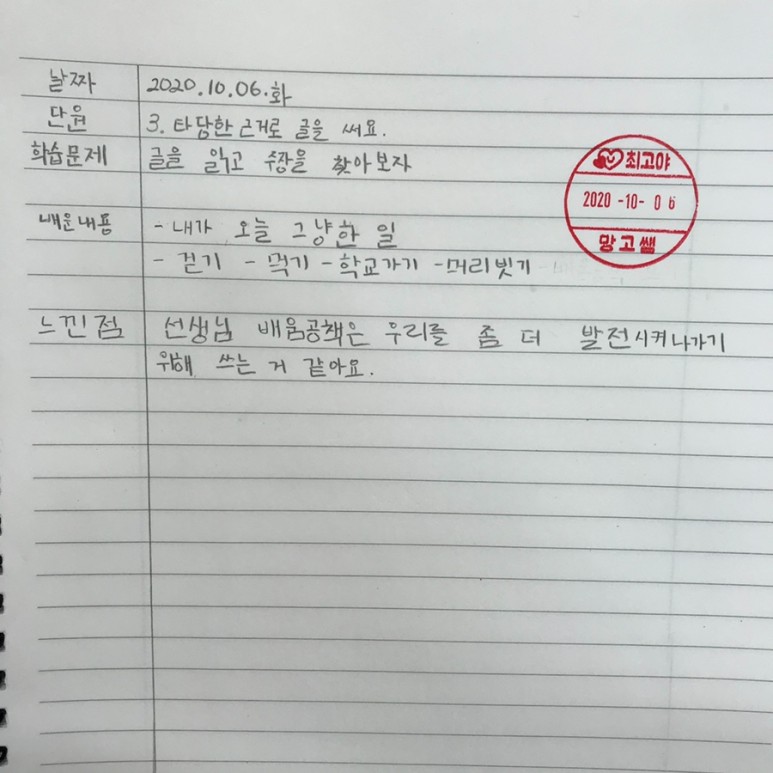 날짜 2020.10.06.화
단원 3. 타당한 근거로 글을 써요.
학습문제 글을 읽고 주장을 찾아보자
최고야
2020-10-06
망고쌤
배운내용 - 내가 오늘 그냥한 일
- 걷기 - 먹기 - 학교가기 - 머리빗기
느낀점 선생님 배움공책은 우리를 좀 더 발전시켜나가기
위해 쓰는 거 같아요.